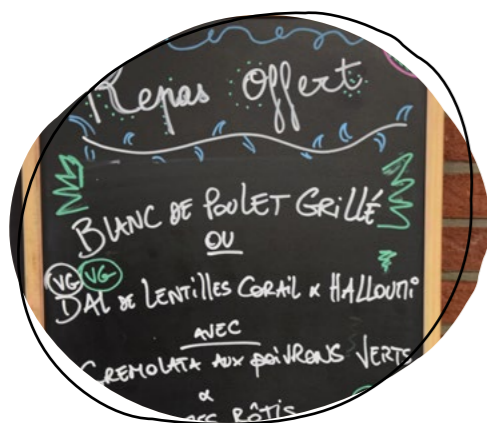 Repas Offert
BLANC DE POULET GRILLÉ
OU
VG VG
DAL DE LENTILLES CORAIL & HALLOUMI
AVEC
GREMOLATA AUX POIVRONS VERTS
&
RÔTIS